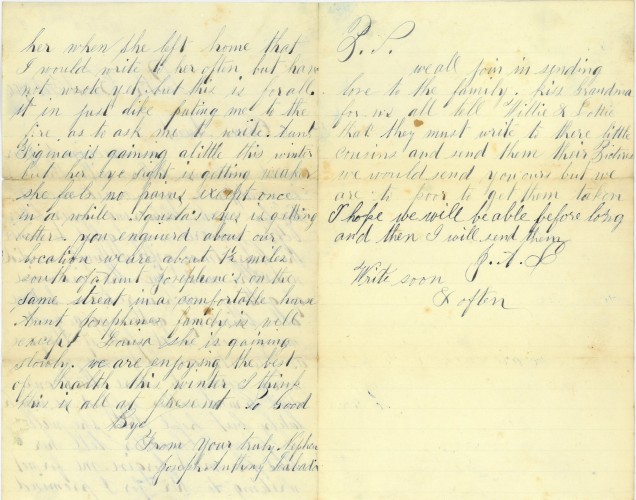 her when she left home that
I would write to her often but have
not wrote yet. but this is for all.
it in just like puting me to the
fire as to ask me to write. Aunt
is gaining a little this winter
but her eye sight is getting weaker
she feels no pains except once
in a while. eyes is getting
better. you enquired about our
location we are about 1½ miles
south of aunt Josephene's on the
same streat in a comfortable house
Aunt Josephines family is well
except Louisa she is gaining
slowly. we are enjoying the best
of health this winter I think
this is all at present So Good
Bye
From your truly Nephew
Joseph Anthony
P.S.
we all join in sending
love to the family. Kiss Grandma
for us all tell Willie & Lottie
that they must write to there little
cousins and send them their Pictures
we would send you ours but we
are to poor to get them taken
I hope we will be able before long
and then I will send them
J. A. L
Write soon
& often